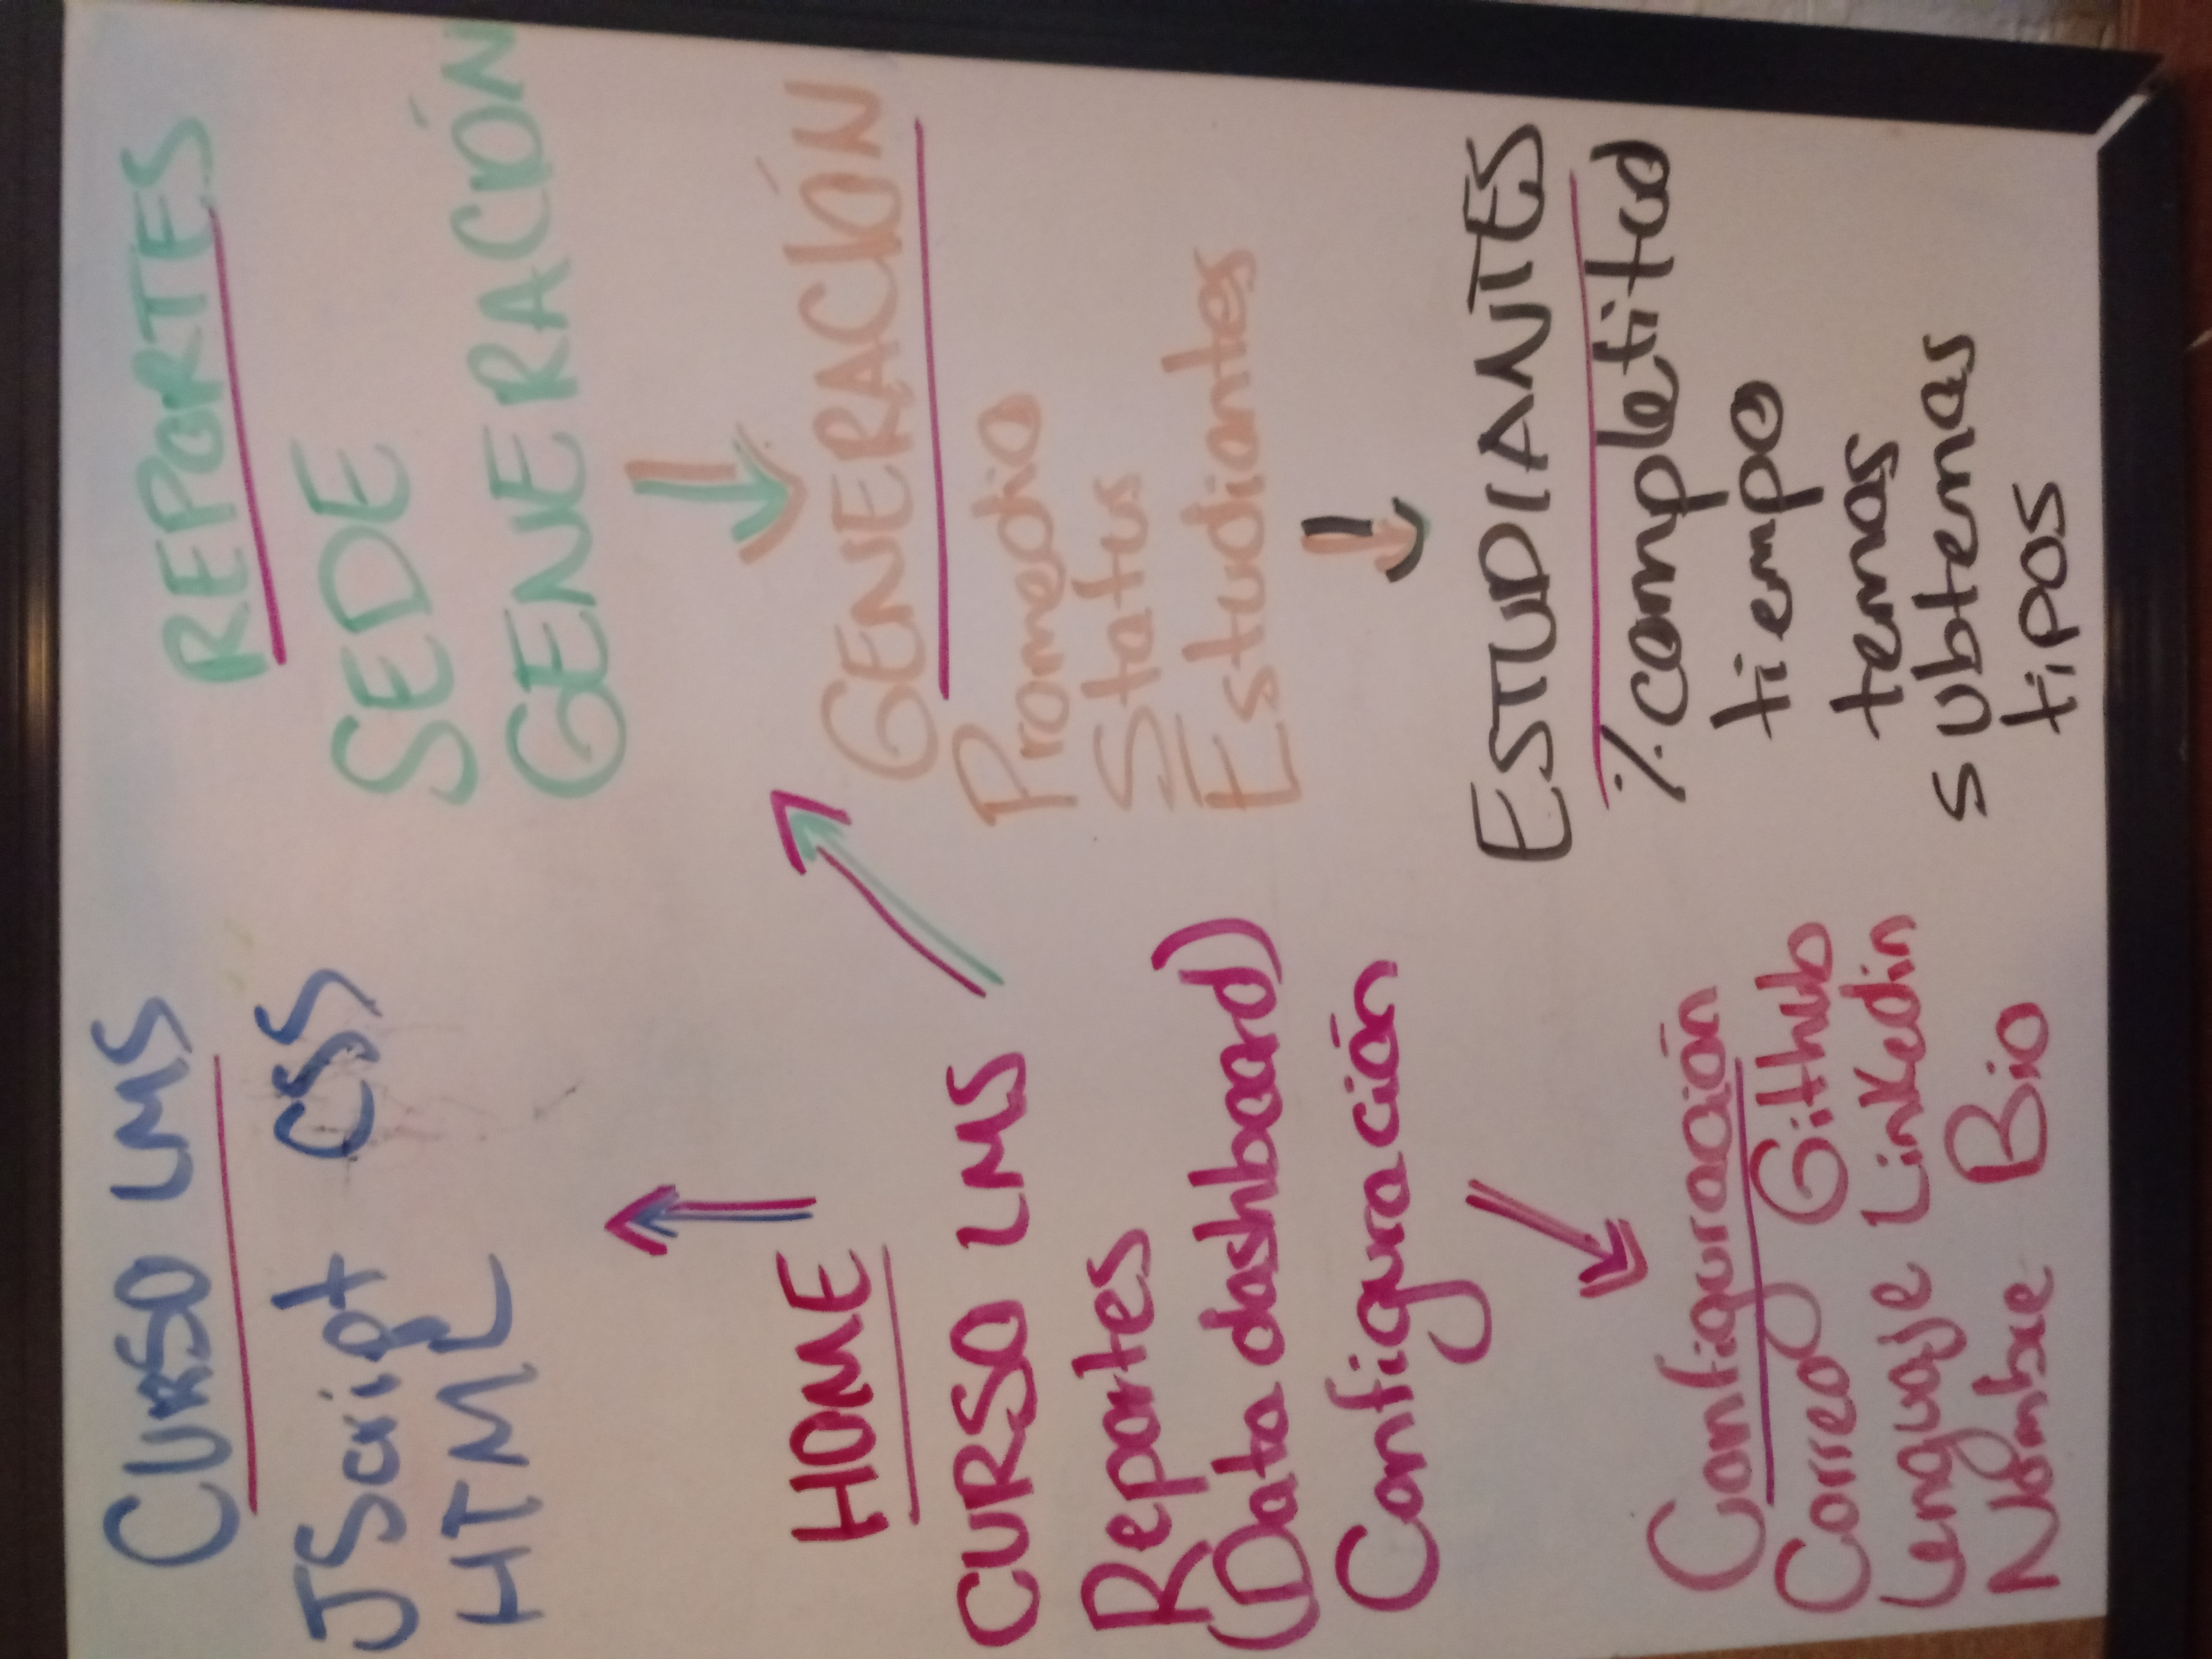 CURSO LMS
JScript CSS
HTML
HOME
CURSO LMS
Reportes
(Data dashboard)
Configuración
Configuración
Correo Github
Lenguaje Linkedin
Nombre Bio
REPORTES
SEDE
GENERACIÓN
GENERACIÓN
Promedio
Status
Estudiantes
ESTUDIANTES
% completitud
tiempo
temas
subtemas
tipos